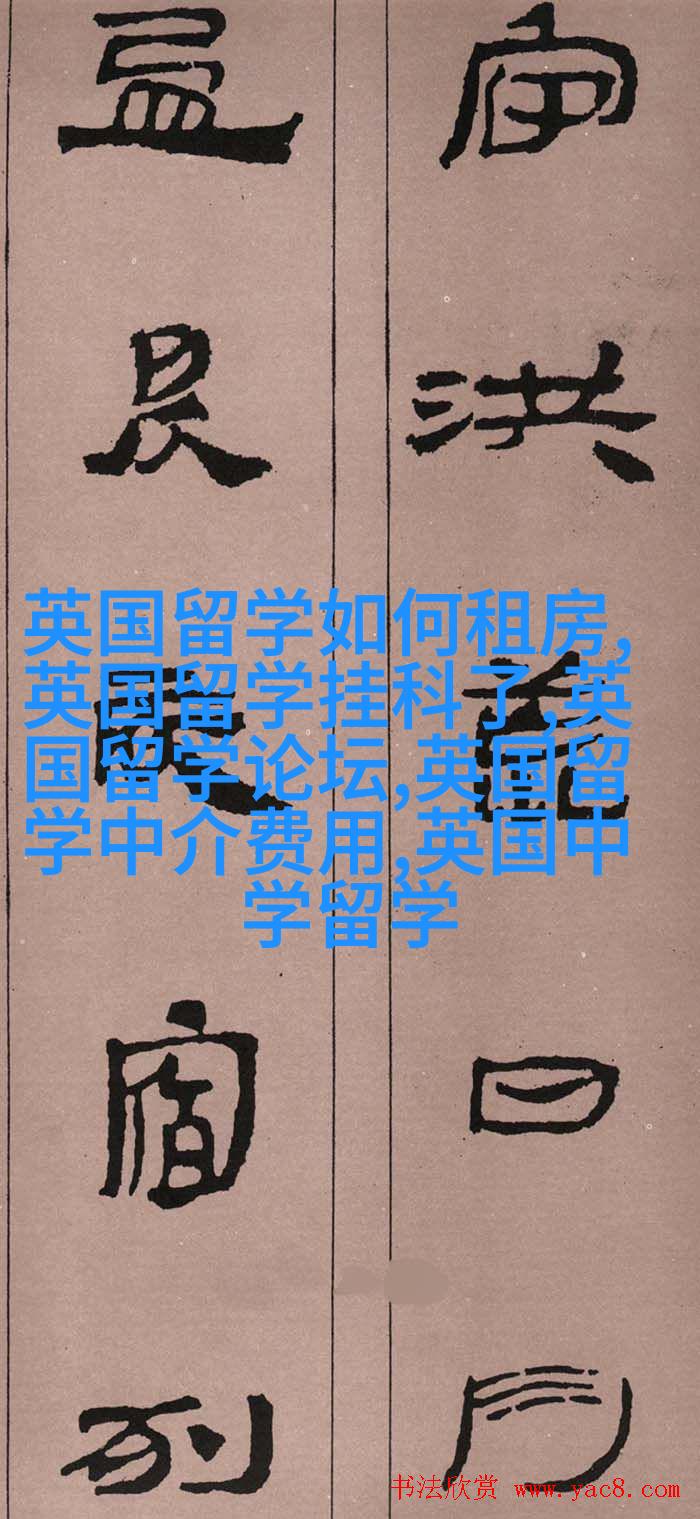 宇洪荒日月
盈昃辰宿列
英国留学如何租房,
英国留学挂科了,英
国留学论坛,英国留
学中介费用,英国中
学留学
书法欣赏 www.yac8.com